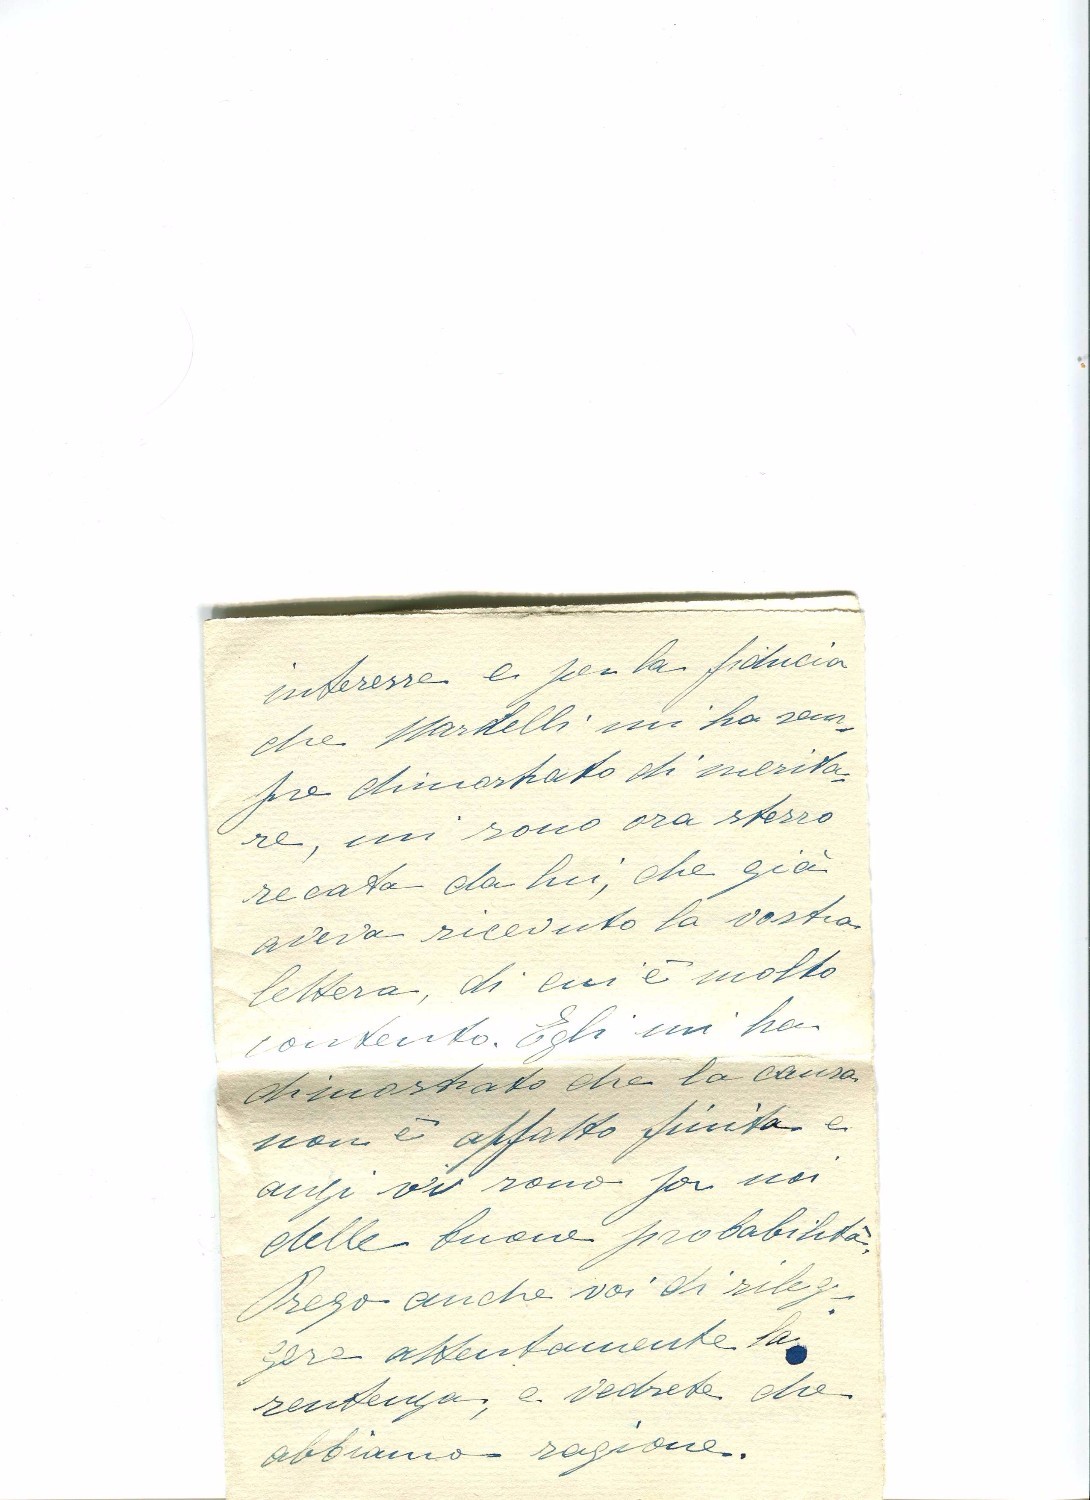 interesse e per la fiducia
che Martelli mi ha sem-
pre dimostrato di merita-
re, mi sono ora stesso
recata da lui, che già
aveva ricevuto la vostra
lettera, di cui è molto
contento. Egli mi ha
dimostrato che la causa
non è affatto finita e
anzi vi sono per noi
delle buone probabilità.
Prego anche voi di rileg-
gere attentamente la
sentenza, e vedrete che
abbiamo ragione.